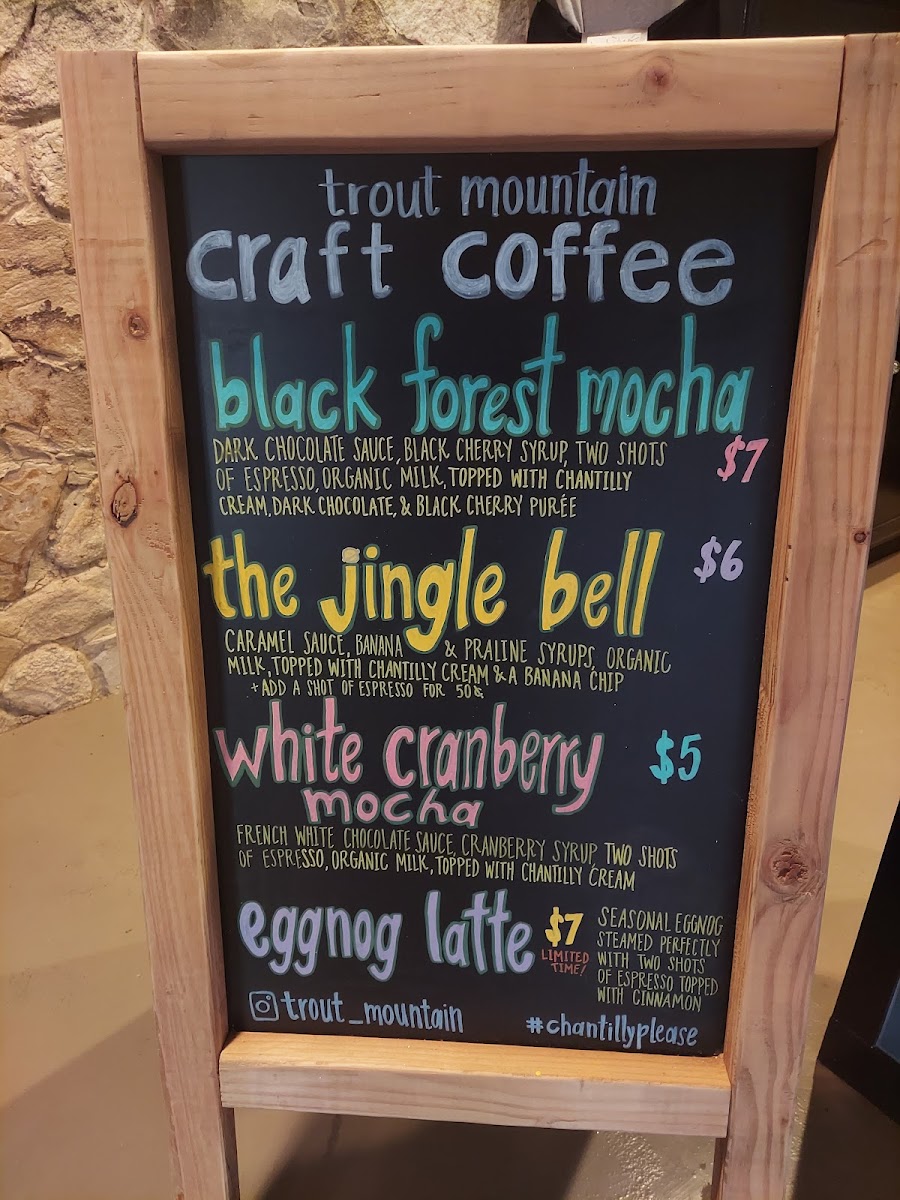 trout mountain
craft coffee
black forest mocha
DARK CHOCOLATE SAUCE, BLACK CHERRY SYRUP, TWO SHOTS
OF ESPRESSO, ORGANIC MILK, TOPPED WITH CHANTILLY
CREAM, DARK CHOCOLATE, & BLACK CHERRY PURÉE
$7
the jingle bell
$6
CARAMEL SAUCE, BANANA & PRALINE SYRUPS, ORGANIC
MILK, TOPPED WITH CHANTILLY CREAM & A BANANA CHIP
+ ADD A SHOT OF ESPRESSO FOR 50¢
white cranberry
mocha
$5
FRENCH WHITE CHOCOLATE SAUCE, CRANBERRY SYRUP, TWO SHOTS
OF ESPRESSO, ORGANIC MILK, TOPPED WITH CHANTILLY CREAM
eggnog latte
$7
LIMITED
TIME!
SEASONAL EGGNOG
STEAMED PERFECTLY
WITH TWO SHOTS
OF ESPRESSO TOPPED
WITH CINNAMON
trout_mountain
#chantillyplease